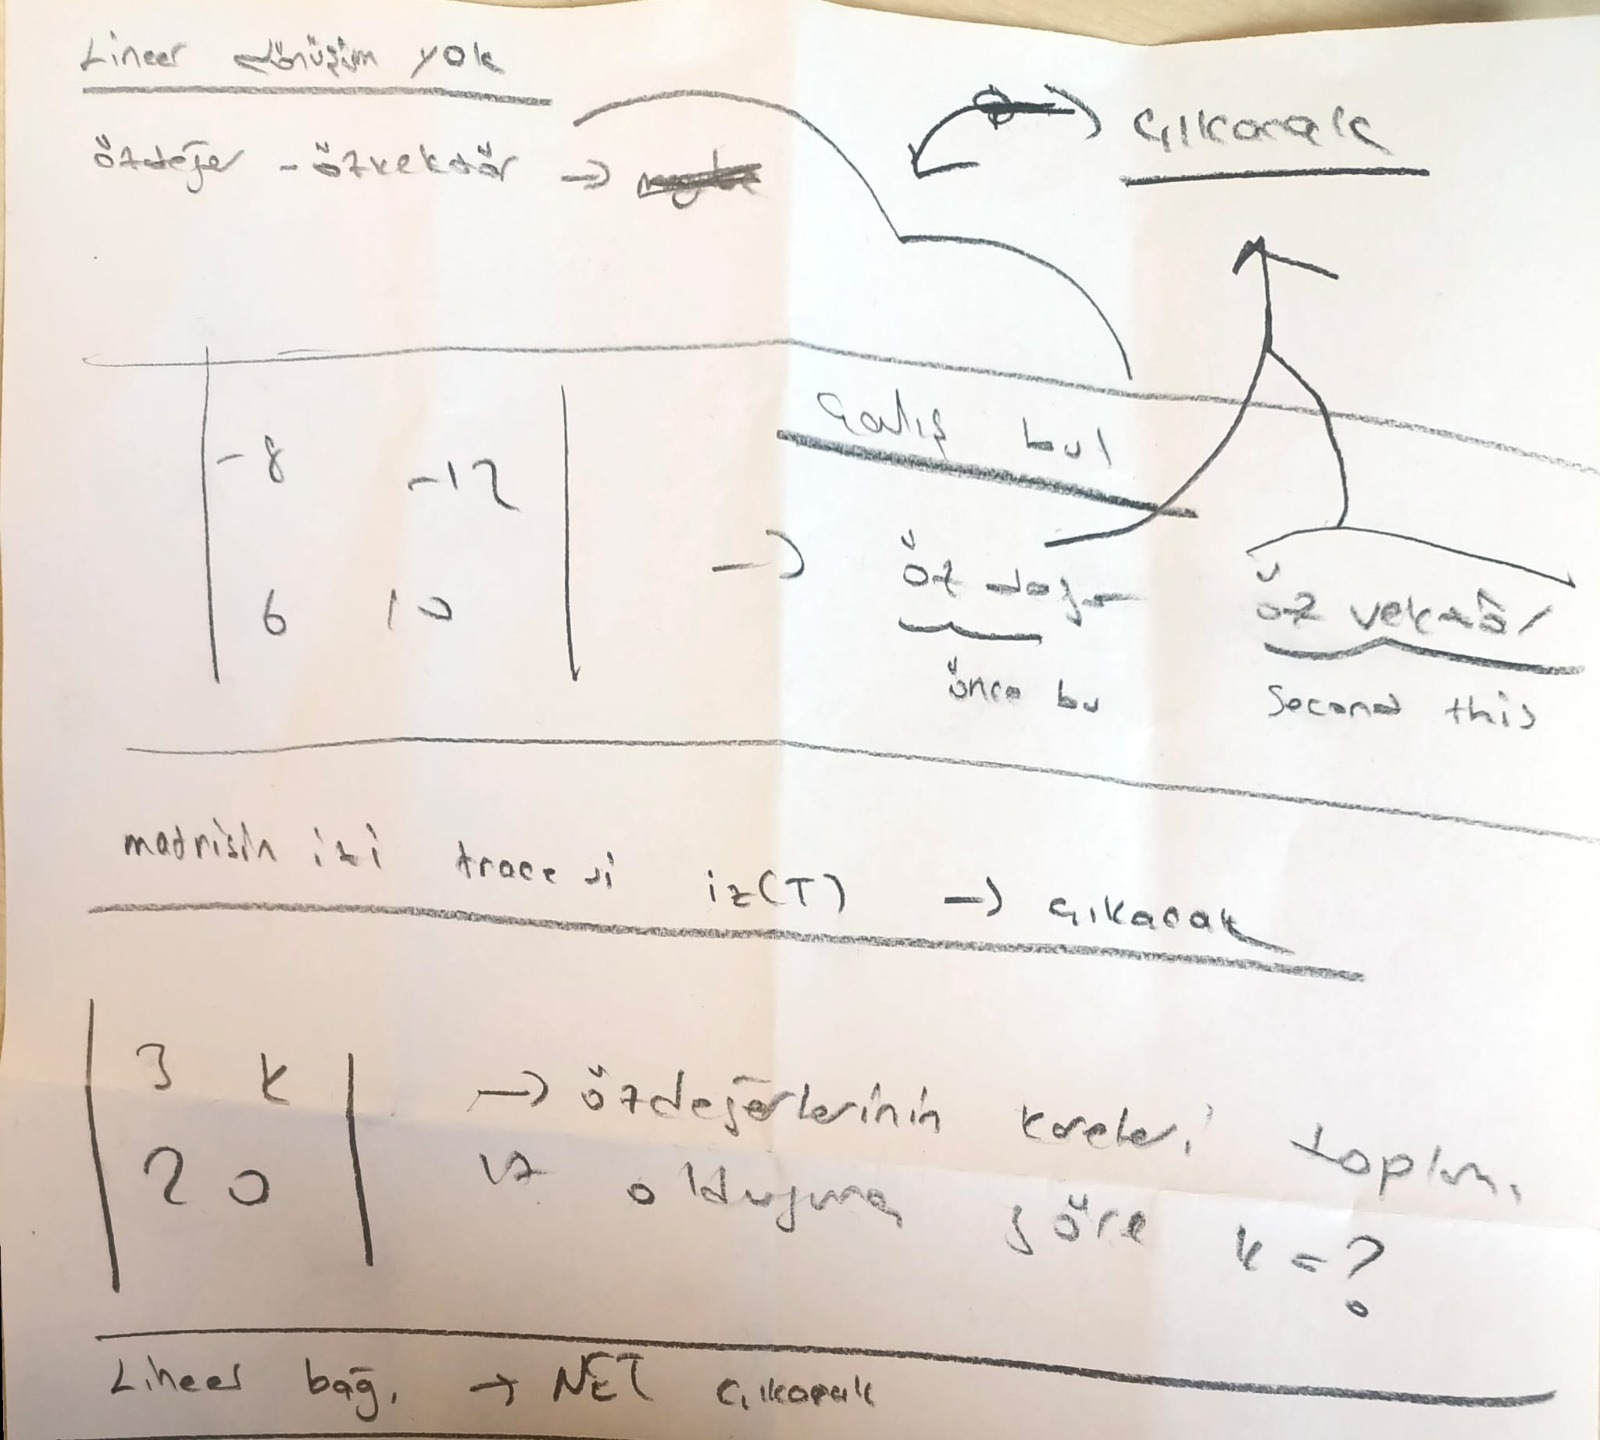 Lineer dönüşüm yok
özdeğer - özvektör → çıkacak
çalış bul
-8 -12
6 10
→ öz değer öz vektör
önce bu second this
matrisin izi trace si iz(T) → çıkacak
3 k
2 0
→ özdeğerlerinin kareleri toplamı
17 olduğuna göre k = ?
Lineer bağ. → NET çıkacak